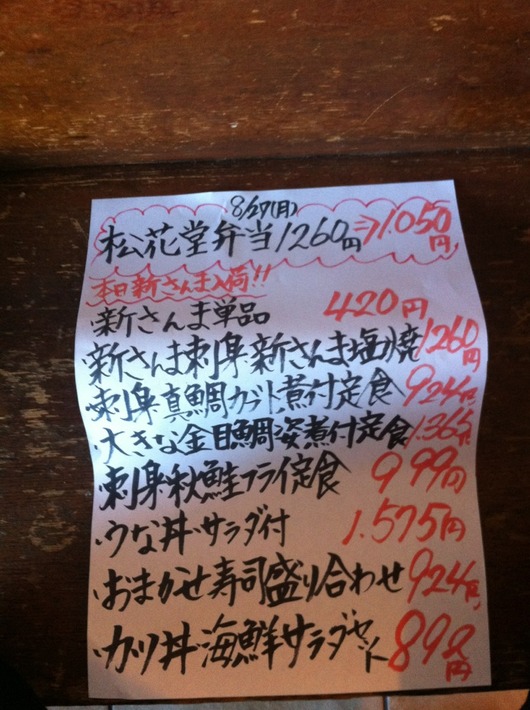 8/27(月)
松花堂弁当1260円⇒1.050円
本日新さんま入荷!!
・新さんま単品 420円
・新さんま刺身・新さんま塩焼 1260円
・刺身・真鯛カブト煮付定食 924円
・大きな金目鯛姿煮付定食 1.365円
・刺身・秋鮭フライ定食 999円
・うな丼・サラダ付 1.575円
・おまかせ寿司盛り合わせ 924円
・カツ丼・海鮮サラダセット 898円